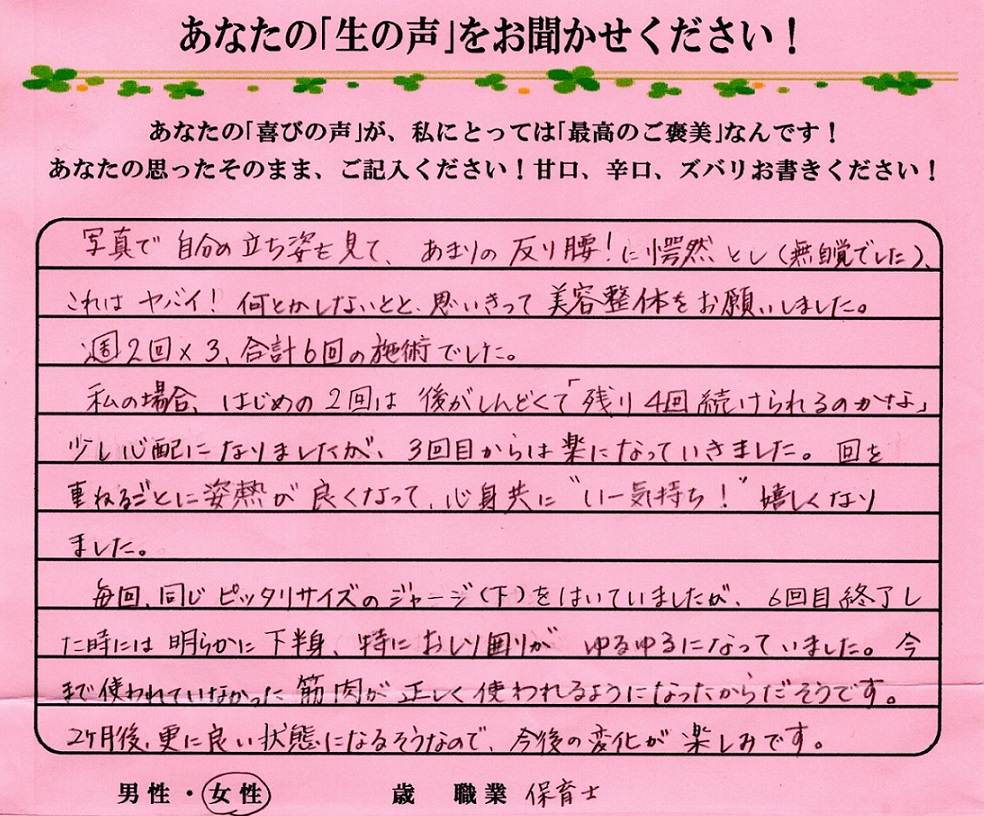 あなたの「生の声」をお聞かせください！
あなたの「喜びの声」が、私にとっては「最高のご褒美」なんです！
あなたの思ったそのまま、ご記入ください！甘口、辛口、ズバリお書きください！
写真で自分の立ち姿を見て、あまりの反り腰！に愕然とし（無自覚でした）、
これはヤバイ！何とかしないとと、思いきって美容整体をお願いしました。
週2回×3、合計6回の施術でした。
私の場合、はじめの2回は後がしんどくて「残り4回続けられるのかな」
少し心配になりましたが、3回目からは楽になっていきました。回を
重ねるごとに姿勢が良くなって、心身共に"いー気持ち！"嬉しくなり
ました。
毎回、同じピッタリサイズのジャージ（下）をはいていましたが、6回目終了し
た時には明らかに下半身、特におしり囲りがゆるゆるになっていました。今
まで使われていなかった筋肉が正しく使われるようになったからだそうです。
2ヶ月後、更に良い状態になるそうなので、今後の変化が楽しみです。
男性・女性 歳 職業 保育士